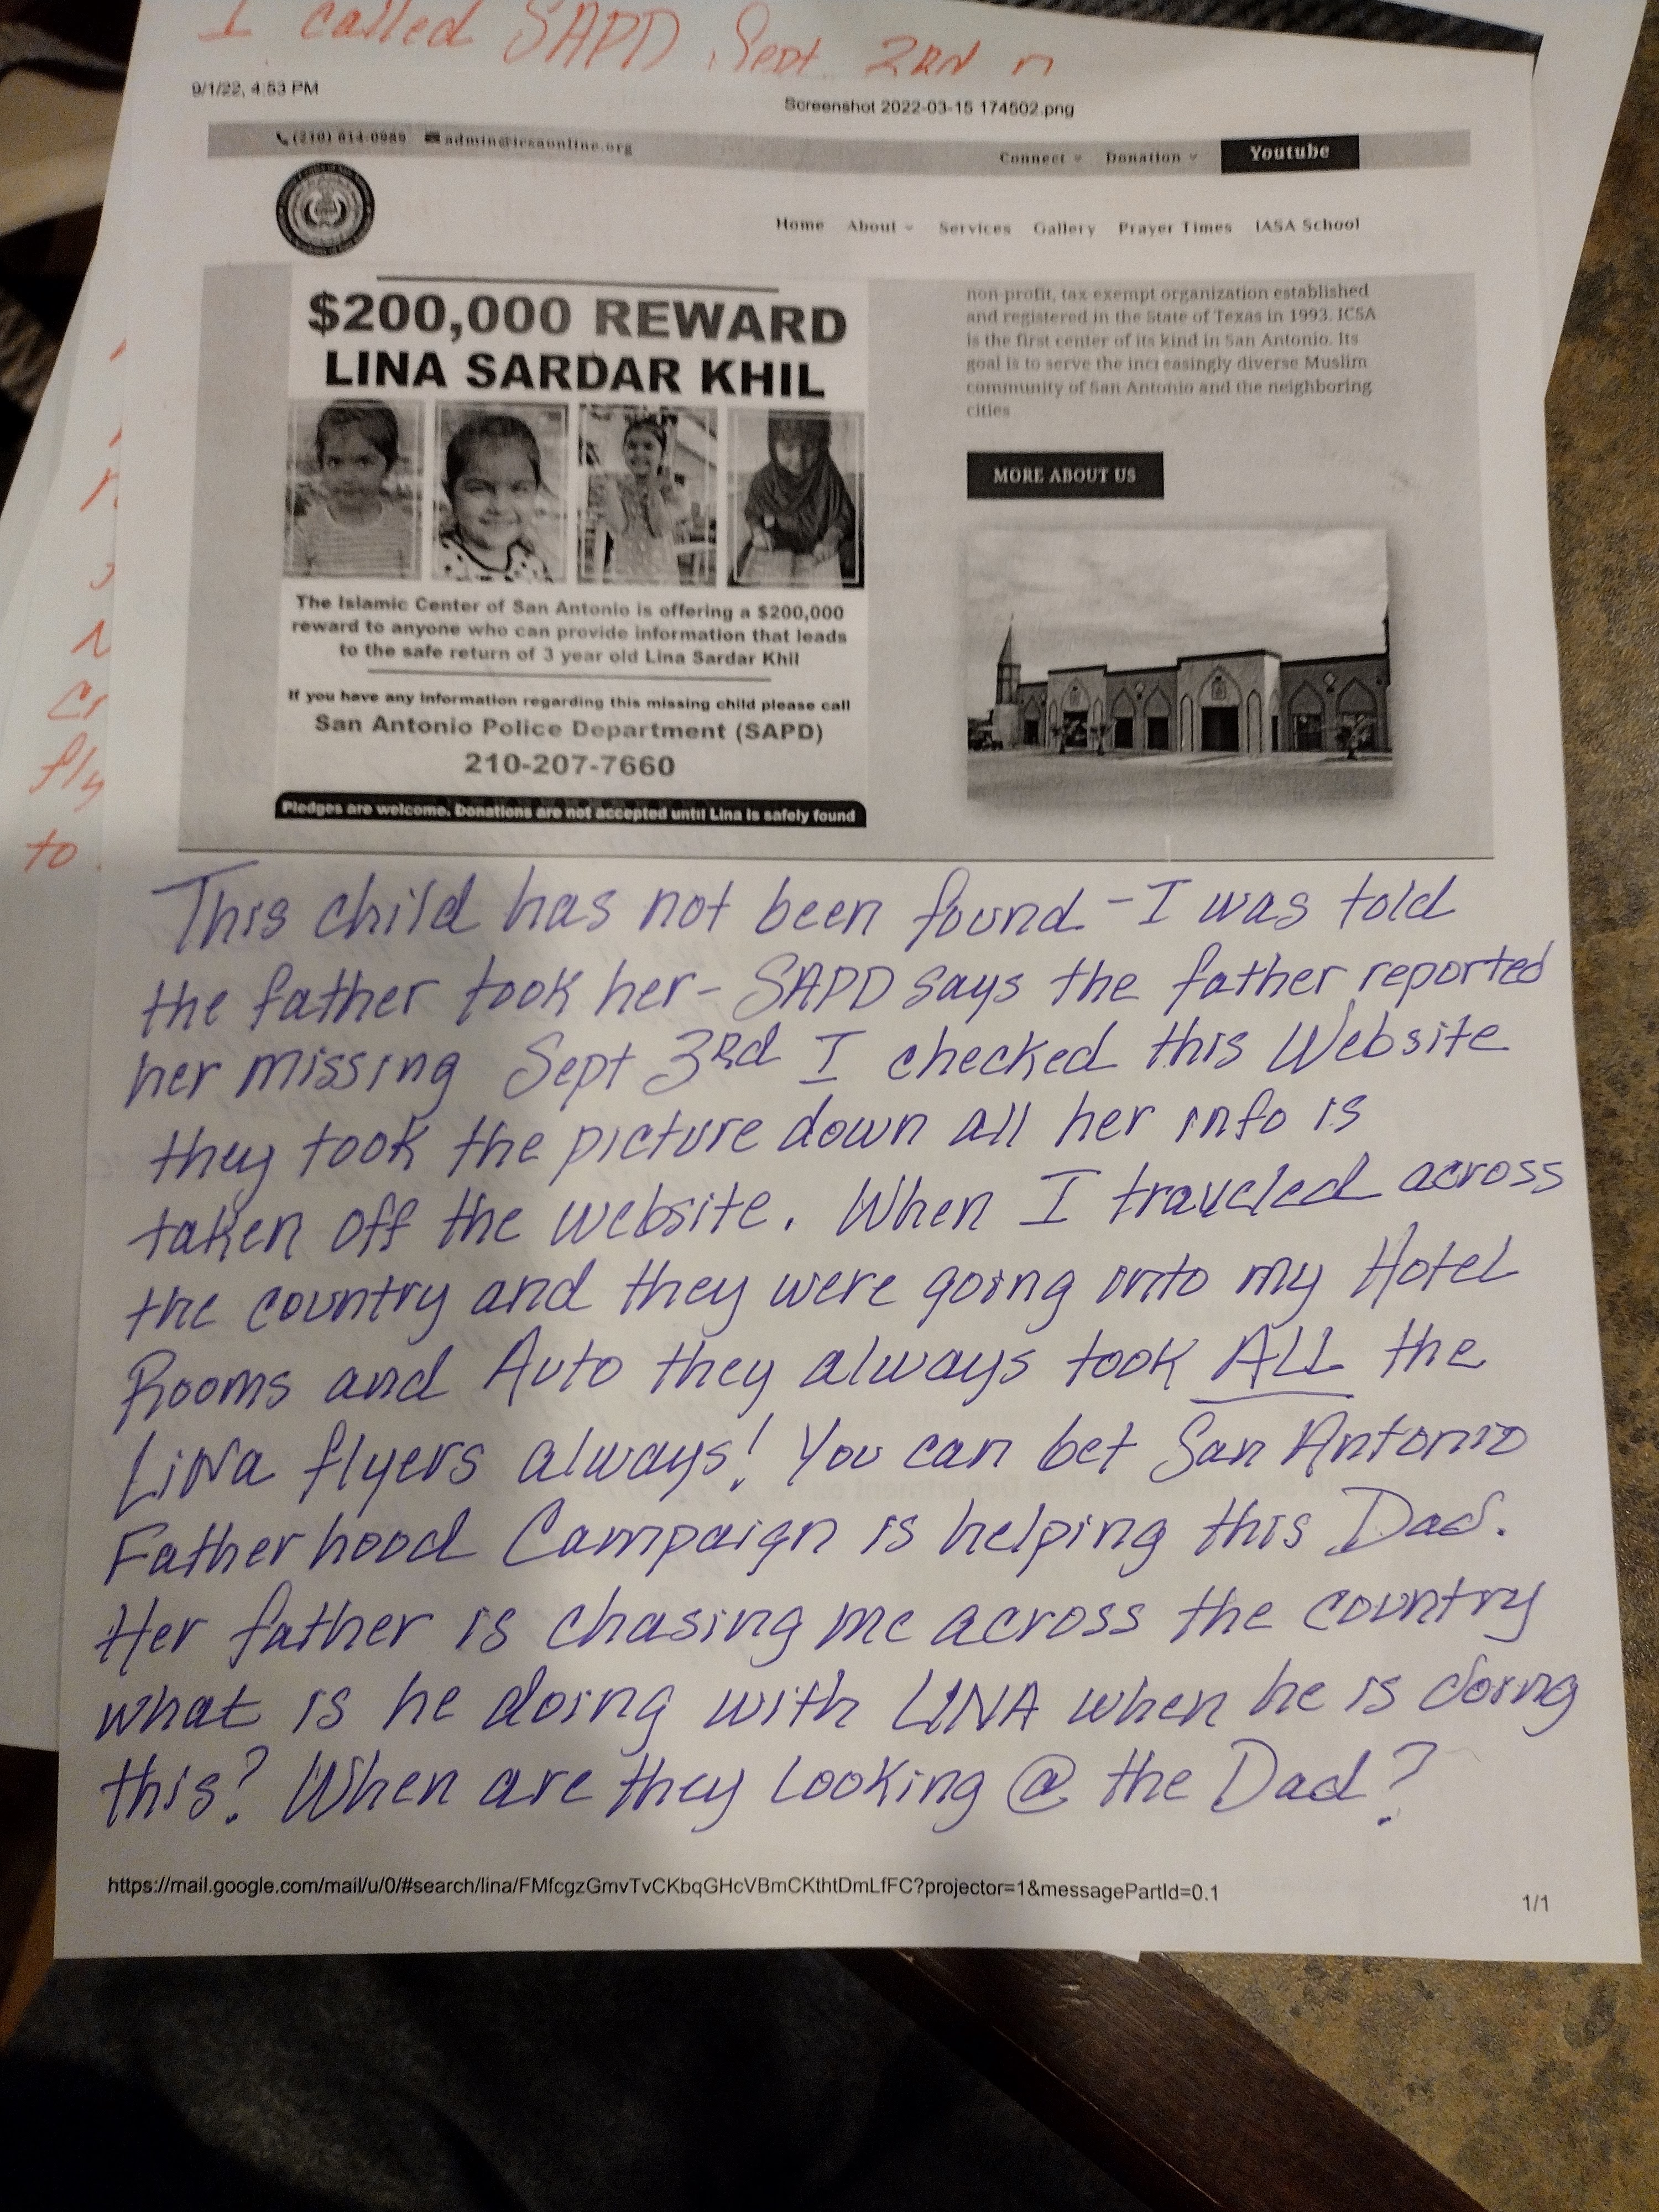 I called SAPD. Sept. 2RN
9/1/22, 4:53 PM
Screenshot 2022-03-15 174502.png
(210) 614-0989 admin@icsaonline.org
Connect Donation Youtube
Home About Services Gallery Prayer Times IASA School
$200,000 REWARD
LINA SARDAR KHIL
The Islamic Center of San Antonio is offering a $200,000
reward to anyone who can provide information that leads
to the safe return of 3 year old Lina Sardar Khil
If you have any information regarding this missing child please call
San Antonio Police Department (SAPD)
210-207-7660
Pledges are welcome. Donations are not accepted until Lina is safely found
non-profit, tax exempt organization established
and registered in the State of Texas in 1993. ICSA
is the first center of its kind in San Antonio. Its
goal is to serve the increasingly diverse Muslim
community of San Antonio and the neighboring
cities
MORE ABOUT US
fly
to
This child has not been found - I was told
the father took her - SAPD says the father reported
her missing Sept 3Rd I checked this Website
they took the picture down all her info is
taken off the website. When I traveled across
the country and they were going into my Hotel
Rooms and Auto they always took ALL the
LiNa flyers always! You can bet San Antonio
Fatherhood Campaign is helping this Dad.
Her father is chasing me across the country
what is he doing with LINA when he is doing
this? When are they Looking @ the Dad?
https://mail.google.com/mail/u/0/#search/lina/FMfcgzGmvTvCKbqGHcVBmCKthtDmLfFC?projector=1&messagePartId=0.1
1/1